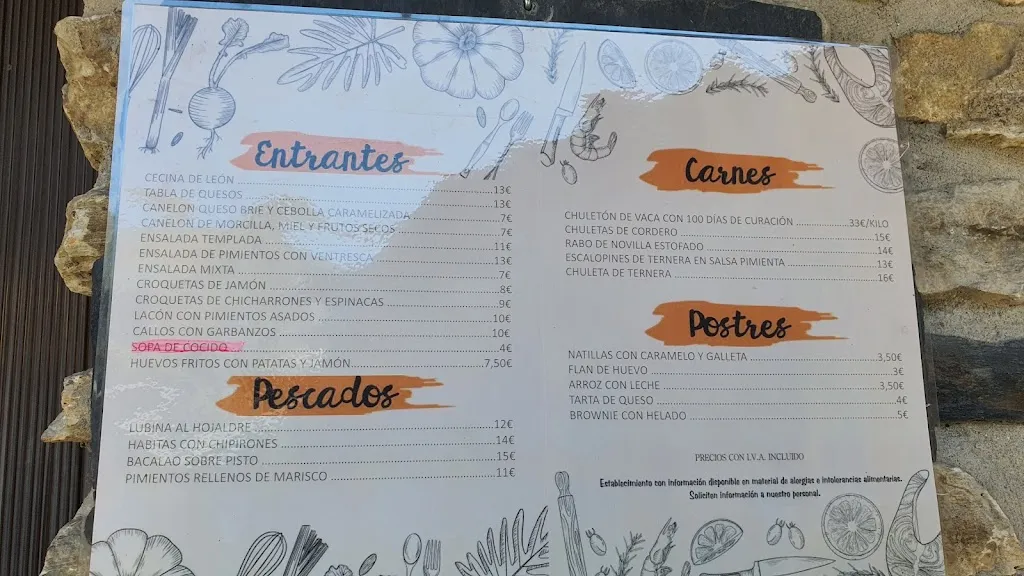 Entrantes
CECINA DE LEÓN 13€
TABLA DE QUESOS 13€
CANELON QUESO BRIE Y CEBOLLA CARAMELIZADA 7€
CANELON DE MORCILLA, MIEL Y FRUTOS SECOS 7€
ENSALADA TEMPLADA 11€
ENSALADA DE PIMIENTOS CON VENTRESCA 13€
ENSALADA MIXTA 7€
CROQUETAS DE JAMÓN 8€
CROQUETAS DE CHICHARRONES Y ESPINACAS 9€
LACÓN CON PIMIENTOS ASADOS 10€
CALLOS CON GARBANZOS 10€
SOPA DE COCIDO 4€
HUEVOS FRITOS CON PATATAS Y JAMÓN 7,50€
Pescados
LUBINA AL HOJALDRE 12€
HABITAS CON CHIPIRONES 14€
BACALAO SOBRE PISTO 15€
PIMIENTOS RELLENOS DE MARISCO 11€
Carnes
CHULETÓN DE VACA CON 100 DÍAS DE CURACIÓN 33€/KILO
CHULETAS DE CORDERO 15€
RABO DE NOVILLA ESTOFADO 14€
ESCALOPINES DE TERNERA EN SALSA PIMIENTA 13€
CHULETA DE TERNERA 16€
Postres
NATILLAS CON CARAMELO Y GALLETA 3,50€
FLAN DE HUEVO 3€
ARROZ CON LECHE 3,50€
TARTA DE QUESO 4€
BROWNIE CON HELADO 5€
PRECIOS CON I.V.A. INCLUIDO
Establecimiento con información disponible en material de alergias e intolerancias alimentarias.
Soliciten información a nuestro personal.